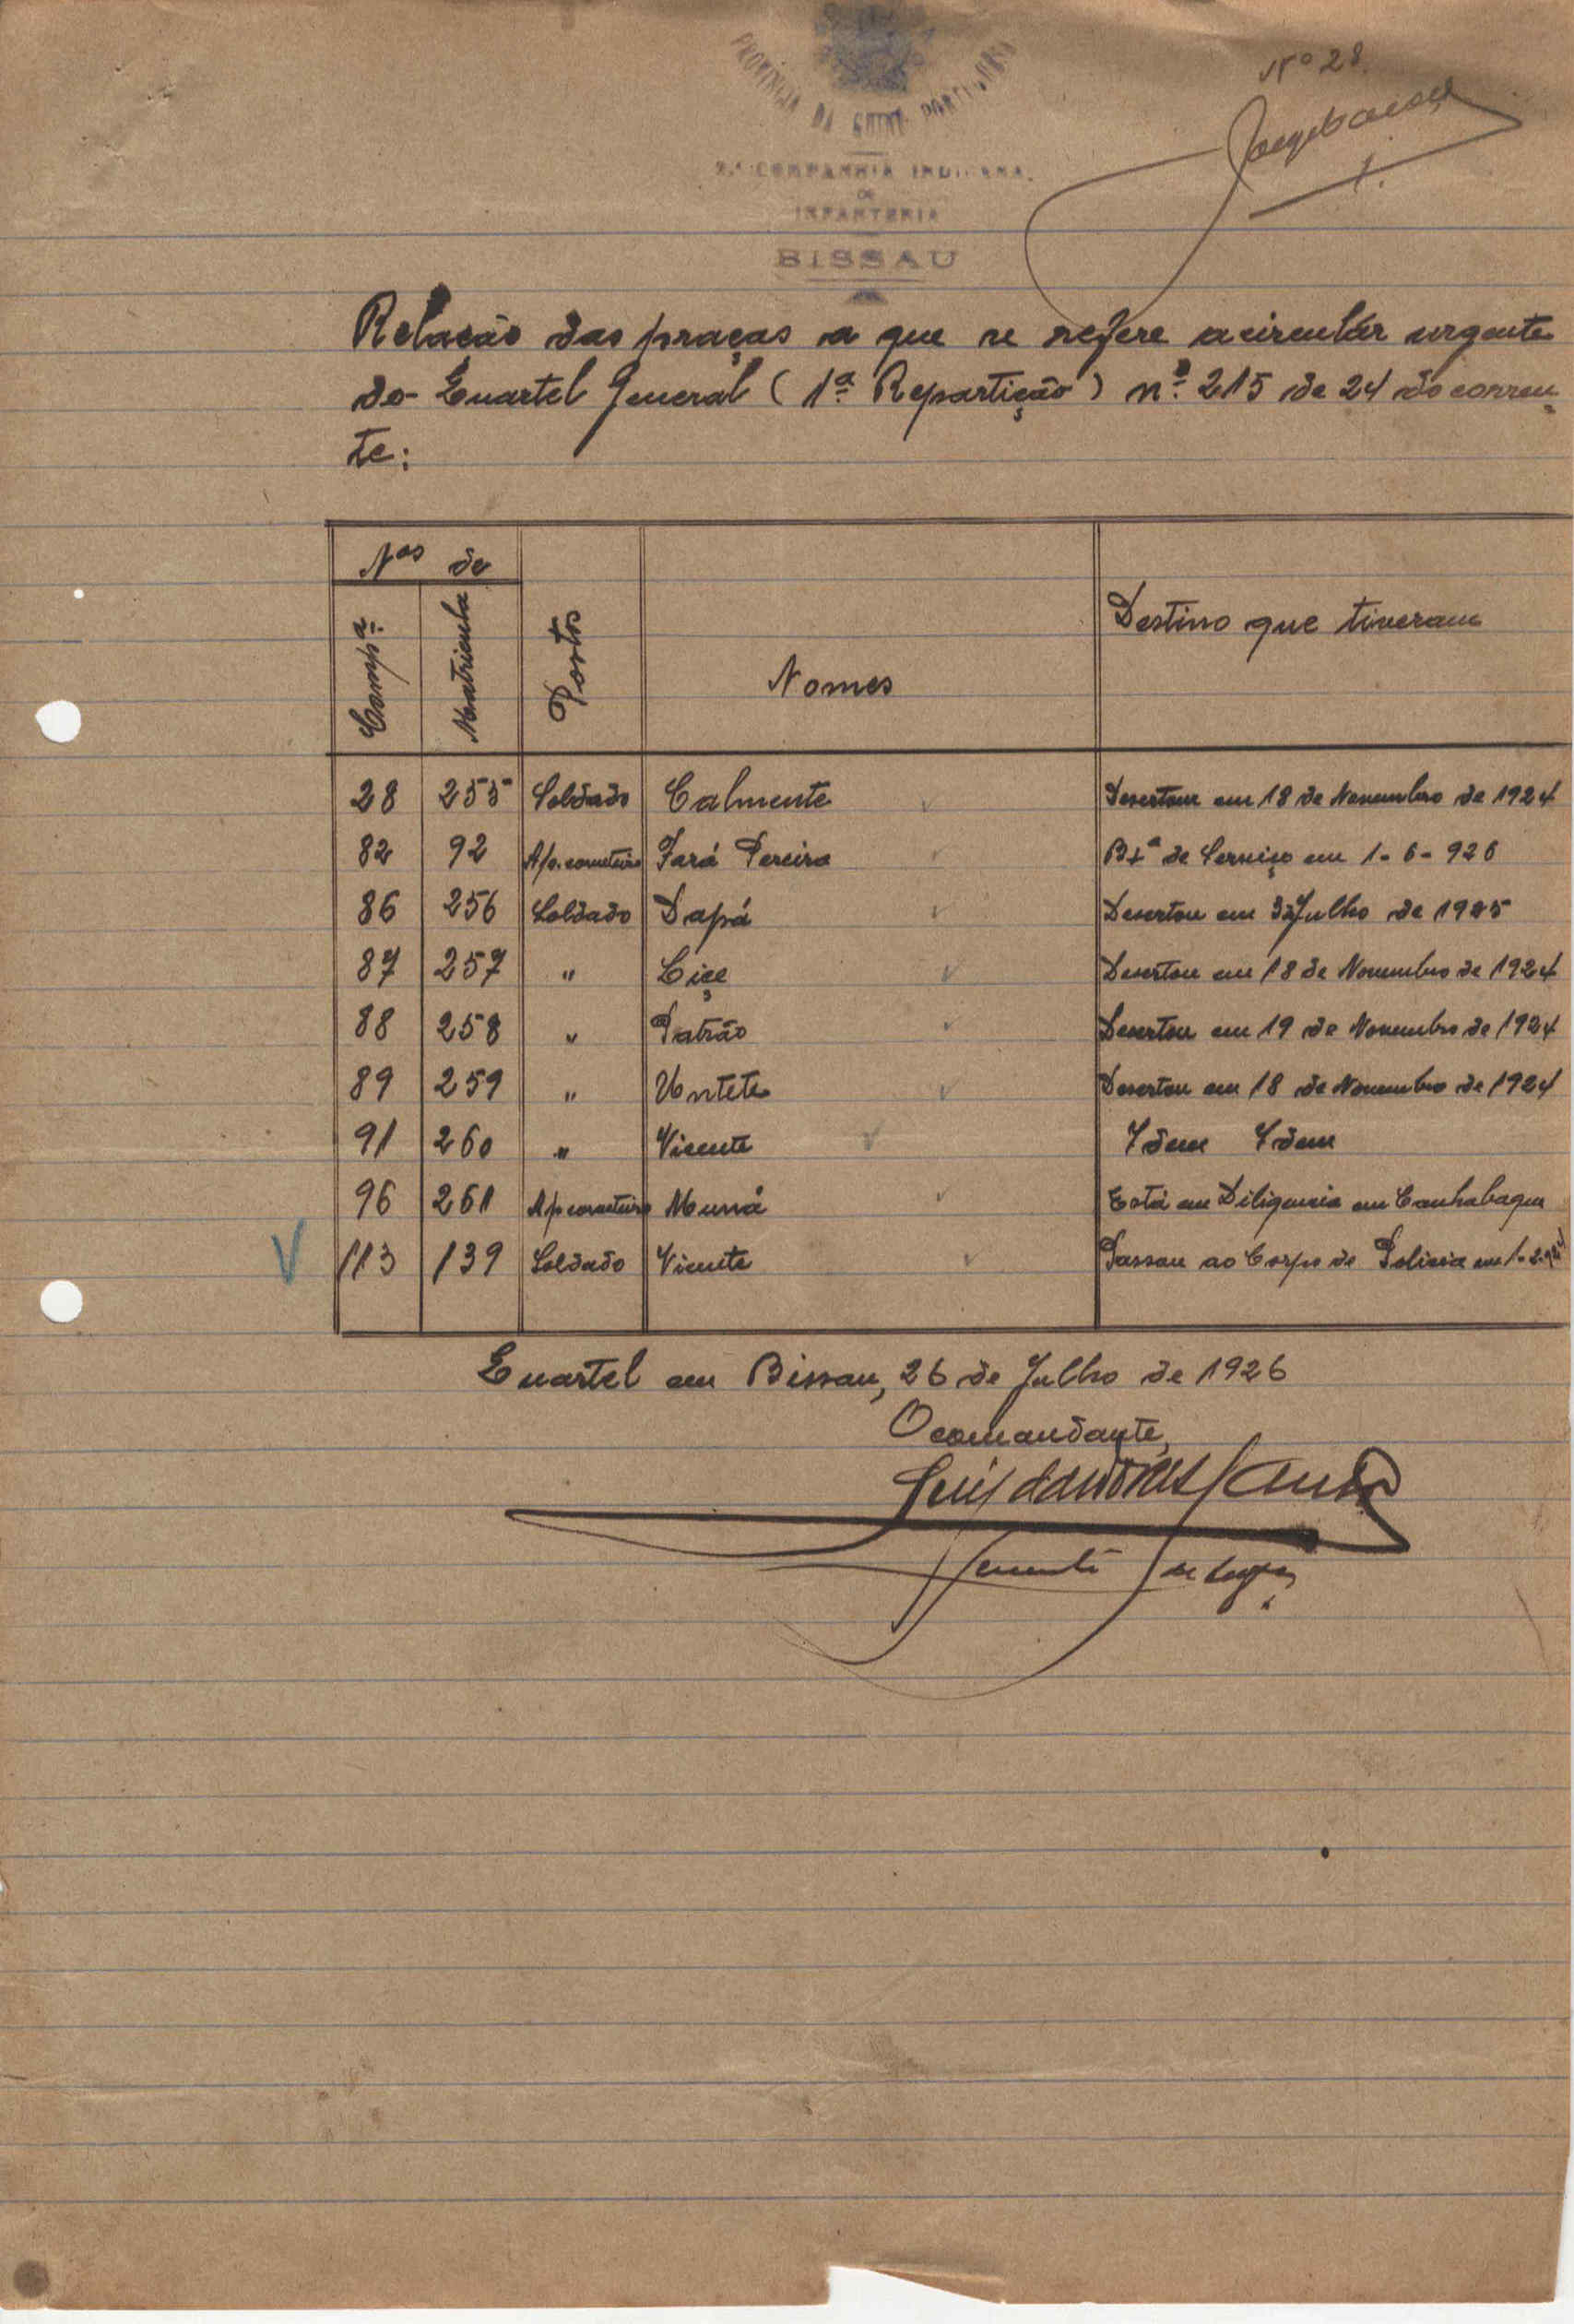 Nº 28
PROVINCIA DA GUINÉ PORTUGUESA
2.ª COMPANHIA INDIGENA
DE
INFANTERIA
BISSAU
Relação das praças a que se refere a circulár urgente
do Quartel General (1ª Repartição) nº 215 de 24 do corren
te:
Nos de
Compª. Matricula Postos Nomes Destino que tiveram
28 255 Soldado Calmente Desertou em 18 de Novembro de 1924
82 92 Ap. corneteiro Fará Pereira Bxª de Serviço em 1-6-926
86 256 Soldado Dapá Desertou em 3 de Julho de 1925
87 257 " Liçe Desertou em 18 de Novembro de 1924
88 258 " Patrão Desertou em 19 de Novembro de 1924
89 259 " Untete Desertou em 18 de Novembro de 1924
91 260 " Vicente Idem Idem
96 261 Ap corneteiro Muná Está em Diligencia em Canhabaque
113 139 Soldado Vicente Passou ao Corpo de Policia em 1-2-924
Quartel em Bissau, 26 de Julho de 1926
O comandante,
Luis